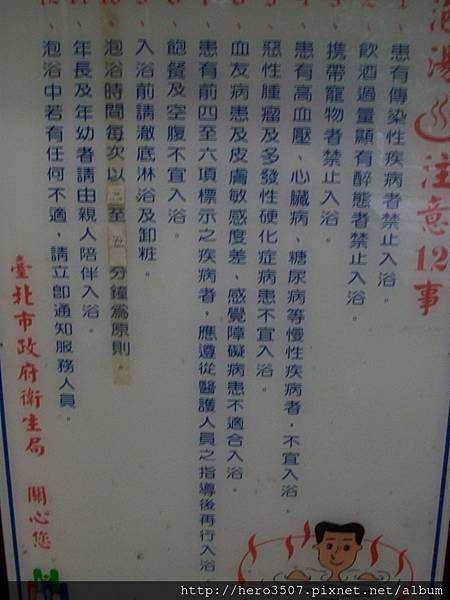 泡湯♨注意12事
1、患有傳染性疾病者禁止入浴。
2、飲酒過量顯有醉態者禁止入浴。
3、攜帶寵物者禁止入浴。
4、患有高血壓、心臟病、糖尿病等慢性疾病者,不宜入浴。
5、惡性腫瘤及多發性硬化症病患不宜入浴。
6、血友病患及皮膚敏感度差、感覺障礙病患不適合入浴。
7、患有前四至六項標示之疾病者,應遵從醫護人員之指導後再行入浴
8、飽餐及空腹不宜入浴。
9、入浴前請澈底淋浴及卸粧。
10、泡浴時間每次以三至五分鐘為原則。
11、年長及年幼者請由親人陪伴入浴。
12、泡浴中若有任何不適,請立即通知服務人員。
臺北市政府衛生局 關心您
http://hero3507.pixnet.net/album